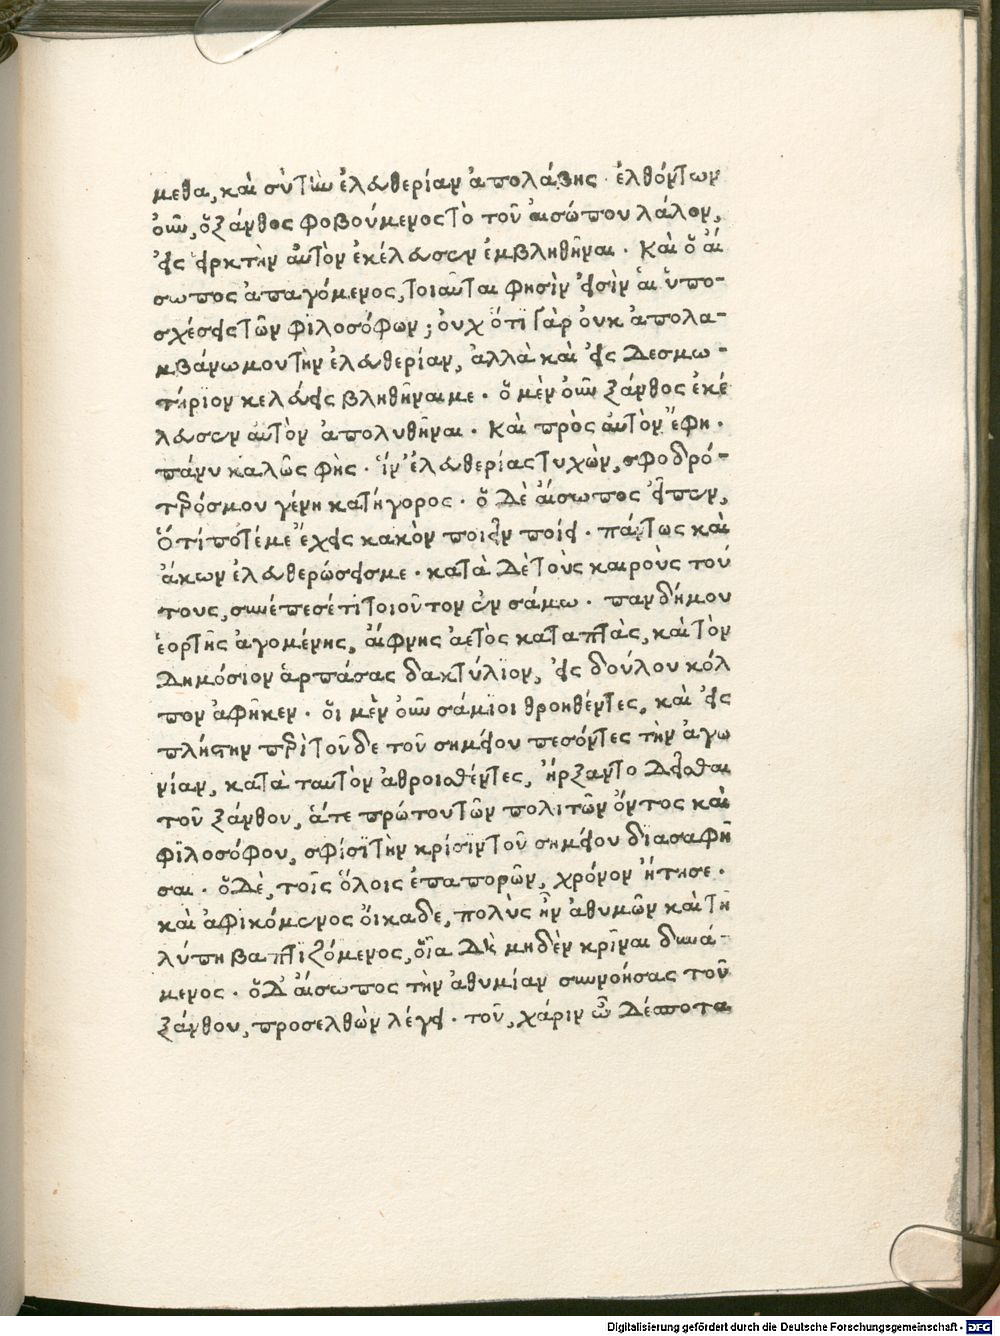 μεθα, καὶ σὺ τὴν ἐλευθερίαν ἀπολάβῃς· ἐλθόντων
οὖν, ὁ ξάνθος φοβούμενος τὸ τοῦ αἰσώπου λάλον,
εἰς εἱρκτὴν αὐτὸν ἐκέλευσεν ἐμβληθῆναι. Καὶ ὁ αἴ
σωπος ἀπαγόμενος, τοιαῦται φησὶν εἰσὶν αἱ ὑπο-
σχέσεις τῶν φϊλοσόφων; οὐχ ὅτι γὰρ οὐκ ἀπολα-
μβάνω μου τὴν ἐλευθερίαν, ἀλλὰ καὶ εἰς δεσμω-
τήριον κελεύεις βληθῆναι με. ὁ μὲν οὖν ξάνθος ἐκέ
λευσεν αὐτὸν ἀπολυθῆναι. Καὶ πρὸς αὐτὸν ἔφη.
πάνυ καλῶς φῂς. ἵν' ἐλευθερίας τυχὼν, σφοδρό-
τερός μου γένη κατήγορος. ὁ δὲ αἴσωπος εἶπεν,
Ὅ τί ποτέ με ἔχεις κακὸν ποιεῖν ποίει. πάντως καὶ
ἄκων ἐλευθερώσεις με. κατὰ δὲ τοὺς καιροὺς τού
τους, συνέπεσέ τι τοιοῦτον ἐν σάμω. πανδήμου
ἑορτῆς ἀγομένης, αἴφνης ἀετὸς καταπτὰς, καὶ τὸν
δημόσιον ἁρπάσας δακτύλϊον, εἰς δούλου κόλ
πον ἀφῆκεν. ὁι μὲν οὖν σάμϊοι θροηθέντες, καὶ εἰς
πλείστην περὶ τοῦδε τοῦ σημείου πεσόντες τὴν ἀγω
νίαν, κατὰ ταυτὸν ἀθροισθέντες, ἤρξαντο δεῖσθαι
τοῦ ξάνθου, ἅτε πρώτου τῶν πολιτῶν ὄντος καὶ
φϊλοσόφου, σφίσϊ τὴν κρίσϊν τοῦ σημείου διασαφῆ
σαι. ὁ δὲ, τοῖς ὅλοις ἐπαπορῶν, χρόνον ἤτησε.
καὶ ἀφικόμενος οἴκαδε, πολὺς ἦν ἀθυμῶν καὶ τῆ
λύπη βαπτιζόμενος, οἷα δὴ μηδὲν κρῖναι δυνά-
μενος. ὁ δ' αἴσωπος τὴν ἀθυμίαν συννοήσας τοῦ
ξάνθου, προσελθὼν λέγει. τοῦ, χάριν ὦ δέσποτα
Digitalisierung gefördert durch die Deutsche Forschungsgemeinschaft - DFG